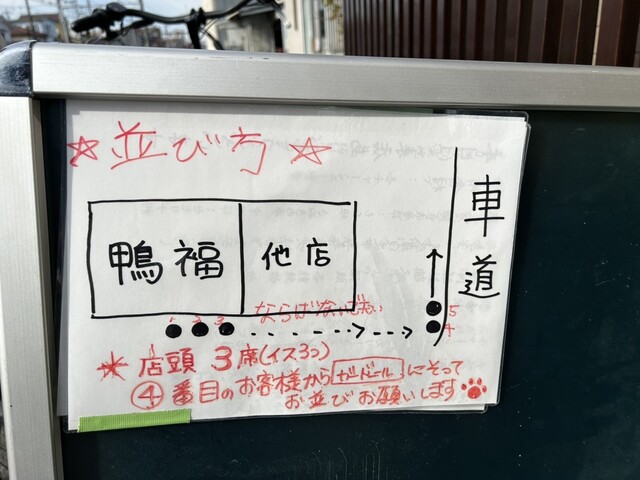 ☆並び方☆
車道
鴨福
他店
1 2 3
ならばないで下さい
5
4
＊店頭3席(イス3つ)
④番目のお客様からガードレールにそって
お並びお願いします